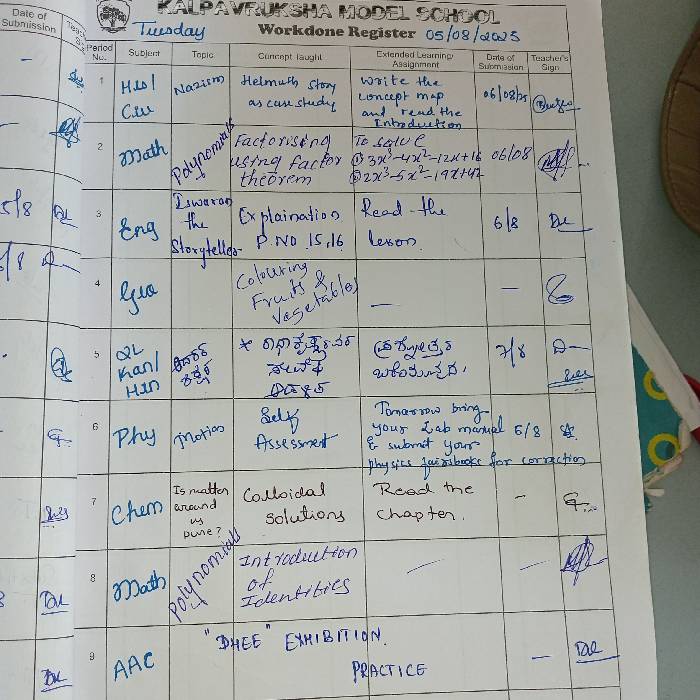 Date of
Submission
KALPAVRUKSHA MODEL SCHOOL
Tuesday
Workdone Register 05/08/2025
Period No.
Subject
Topic
Concept Taught
Extended Learning/ Assignment
Date of Submission
Teacher's Sign
1
His/
Civ
Nazism
Helmuth story
as case study
Write the
concept map
and read the
Introduction
06/08/25
2
Math
Polynomials
Factorising
using factor
theorem
To solve
① 3x³-4x²-12x+16
② 2x³-5x²-19x+42
06/08
3
Eng
Iswaran
the
Storyteller
Explaination
P.No 15,16
Read the
lesson
6/8
4
Geo
Colouring
Fruits &
Vegetables
—
—
5
2L
Kan/
Hin
7/8
6
Phy
motion
Self
Assessment
Tomorrow bring
your Lab manual
& submit your
physics fairsbooks for correction
6/8
7
Chem
Is matter
around
us
pure?
Colloidal
solutions
Read the
chapter.
-
8
Math
Polynomials
Introduction
of
Identities
—
—
9
AAC
"DHEE" EXHIBITION
PRACTICE
—
5/8